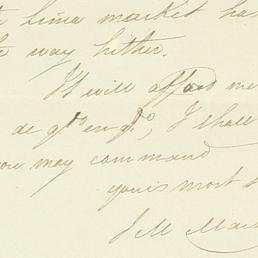 Lima market ha
way hither.
It will afford me
de g^to en g^to, I shall
you may command
yours most
J M Ma